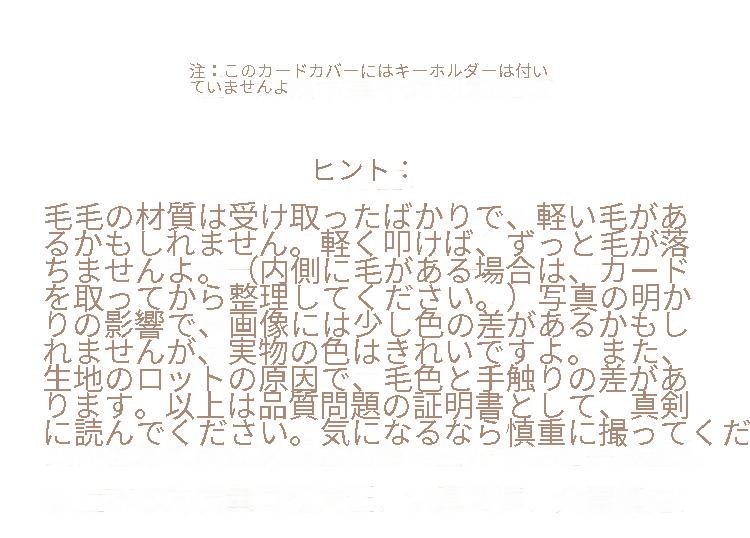 注：このカードカバーにはキーホルダーは付い
ていませんよ
ヒント：
毛毛の材質は受け取ったばかりで、軽い毛があ
るかもしれません。軽く叩けば、ずっと毛が落
ちませんよ。（内側に毛がある場合は、カード
を取ってから整理してください。）写真の明か
りの影響で、画像には少し色の差があるかもし
れませんが、実物の色はきれいですよ。また、
生地のロットの原因で、毛色と手触りの差があ
ります。以上は品質問題の証明書として、真剣
に読んでください。気になるなら慎重に撮ってくだ